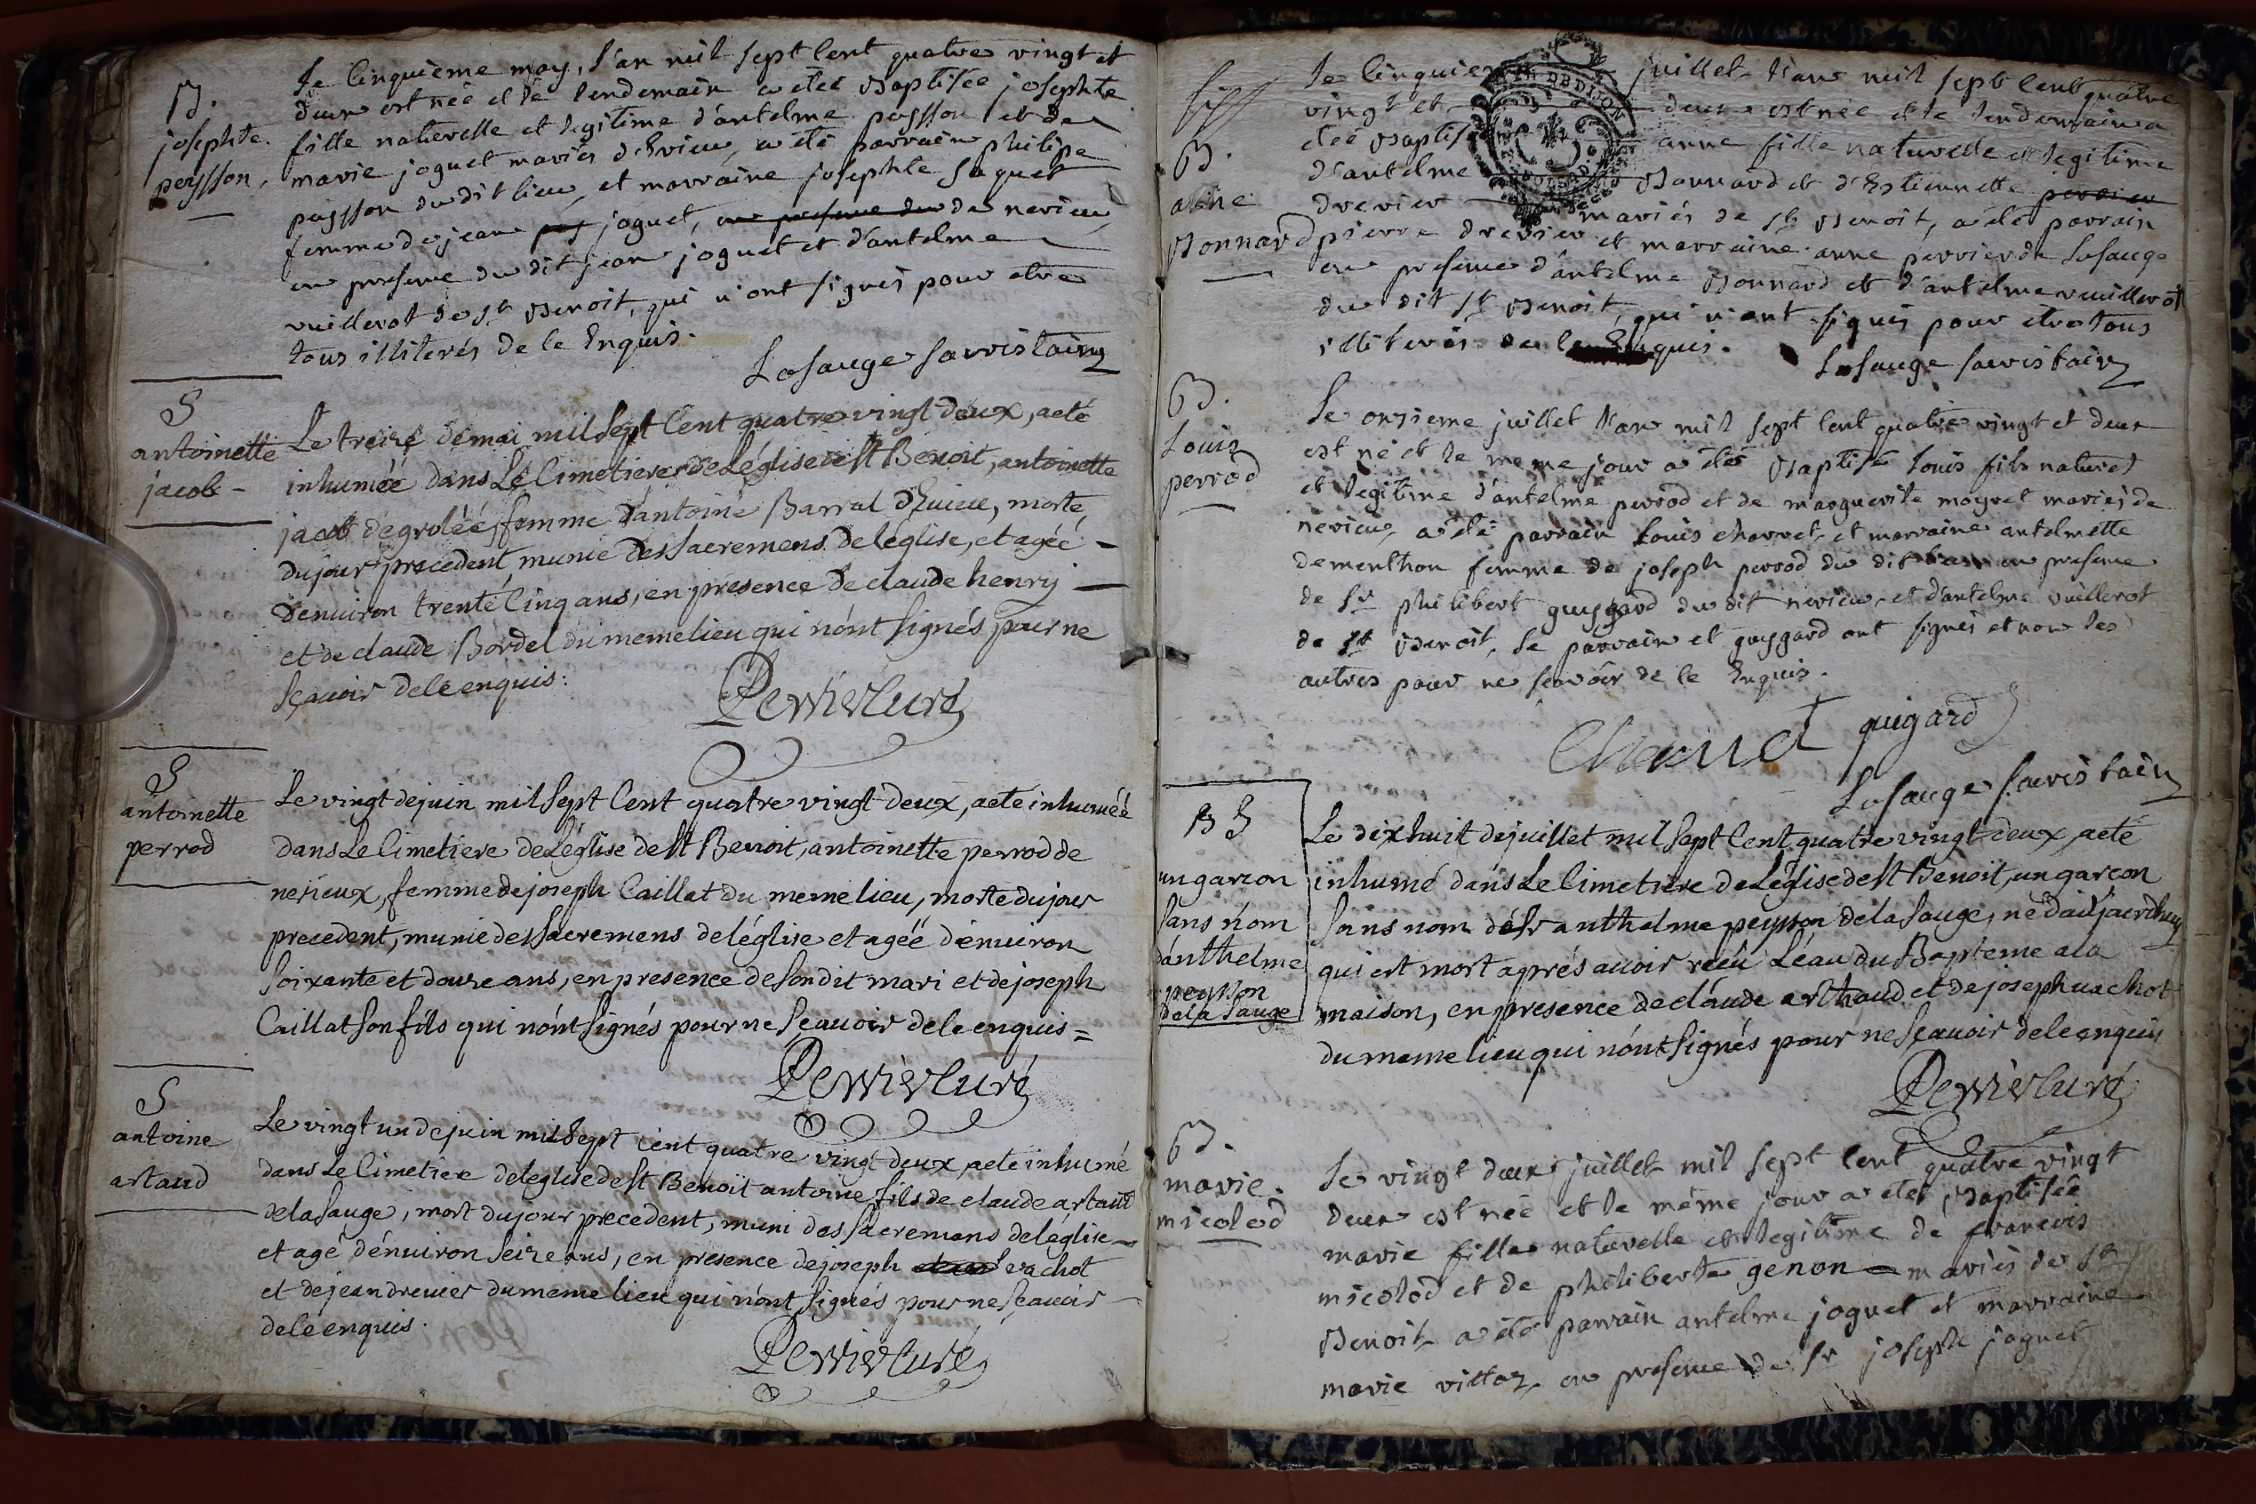 B.
josephte
peysson,
Le cinquième may, l'an mil sept cent quatre vingt et
deux est née et le lendemain a étée Baptisée josephte
fille naturelle et legitime d'antelme peysson et de
marie joguet mariés d'Evieu, a été parrain philipe
peysson du dit lieu, et marraine josephte
femme de jean joguet, en presence du de nerieu
en presence du dit jean joguet et d'antelme
vuillerot de st Benoit, qui n'ont signés pour etre
tous illiterés de le Enquis.
Lasauge sacristain
S
antoinette
jacob -
Le treize de mai mil sept Cent quatre vingt deux, a eté
inhumée dans Le Cimetiere de L'église de st Benoit, antoinette
jacob de grolée, femme d'antoine Barral d'Euieu, morte,
du jour precedent, munie des sacremens de l'eglise, et agée -
d'enuiron trente Cinq ans, en presence de claude henry -
et de claude Bordel du meme lieu qui n'ont signés pour ne
sçauoir de le enquis:
Perrier Curé
S
antoinette
perrod
Le vingt de juin mil sept Cent quatre vingt deux, a eté inhumée
dans Le Cimetiere de L'église de st Benoit, antoinette perrod de
nerieux, femme de joseph Caillat du meme lieu, morte du jour
precedent, munie des sacremens de l'église et agée d'enuiron
soixante et douze ans, en presence de son dit mari et de joseph
Caillat son fils qui n'ont signés pour ne sçauoir de le enquis =
Perrier Curé
S
antoine
artaud
Le vingt un de juin mil sept cent quatre vingt deux, a eté inhumé
dans Le Cimetiere de l'eglise de st Benoit antoine fils de claude artaud
de la sauge, mort du jour precedent, muni des sacremens de l'église -
et agé d'enuiron seize ans, en presence de joseph vachot
et de jean dreuier du meme lieu qui n'ont signés pour ne sçauoir -
de le enquis.
Perrier Curé
B.
anne
Bonnard
Le cinquieme juillet l'an mil sept cent quatre
vingt et deux est née et le lendemain a
étée Baptisée anne fille naturelle et legitime
d'antelme Bonnard et d'Estiennette perrier
drevier mariés de st Benoit, a été parrain
pierre drevier et marraine anne perrier de Lasauge
en presence d'antelme Bonnard et d'antelme vuillerot
du dit st Benoit, qui n'ont signés pour etre tous
illiterés de le Enquis.
Lasauge sacristain
B.
Louis
perrod
Le onzieme juillet l'an mil sept cent quatre vingt et deux
est né et le meme jour a été Baptisé Louis fils naturel
et legitime d'antelme perrod et de marguerite moynet mariés de
nerieu, a été parrain Louis charvet, et marraine antelmette
dementhon femme de joseph perrod du dit lieu en presence
de sr philibert guygard du dit nerieu, et d'antelme vuillerot
de st Benoit, le parrain et guygard ont signés et non les
autres pour ne sçavoir de le Enquis.
Charvet guigard
Lasauge sacristain
B S
un garcon
sans nom
d'anthelme
peysson
de la sauge
Le dix huit de juillet mil sept Cent quatre vingt deux, a eté
inhumé dans Le Cimetiere de L'église de st Benoit, un garcon
sans nom de sr anthelme peysson de la sauge, né d'aujourdhuy
qui est mort aprés auoir reçu L'eau du Bapteme a la
maison, en presence de claude arthaud et de joseph vachot
du meme lieu qui n'ont signés pour ne sçauoir de le enquis
Perrier Curé
B.
marie
micolod
Le vingt deux juillet mil sept cent quatre vingt
deux est née et le même jour a étée Baptisée
marie fille naturelle et legitime de francois
micolod et de philiberte genon mariés de st
Benoit a été parrain antelme joguet et marraine
marie vittoz, en presence de sr joseph joguet